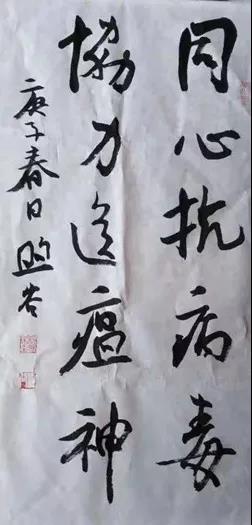 同心抗病毒
協力送瘟神
庚子春日